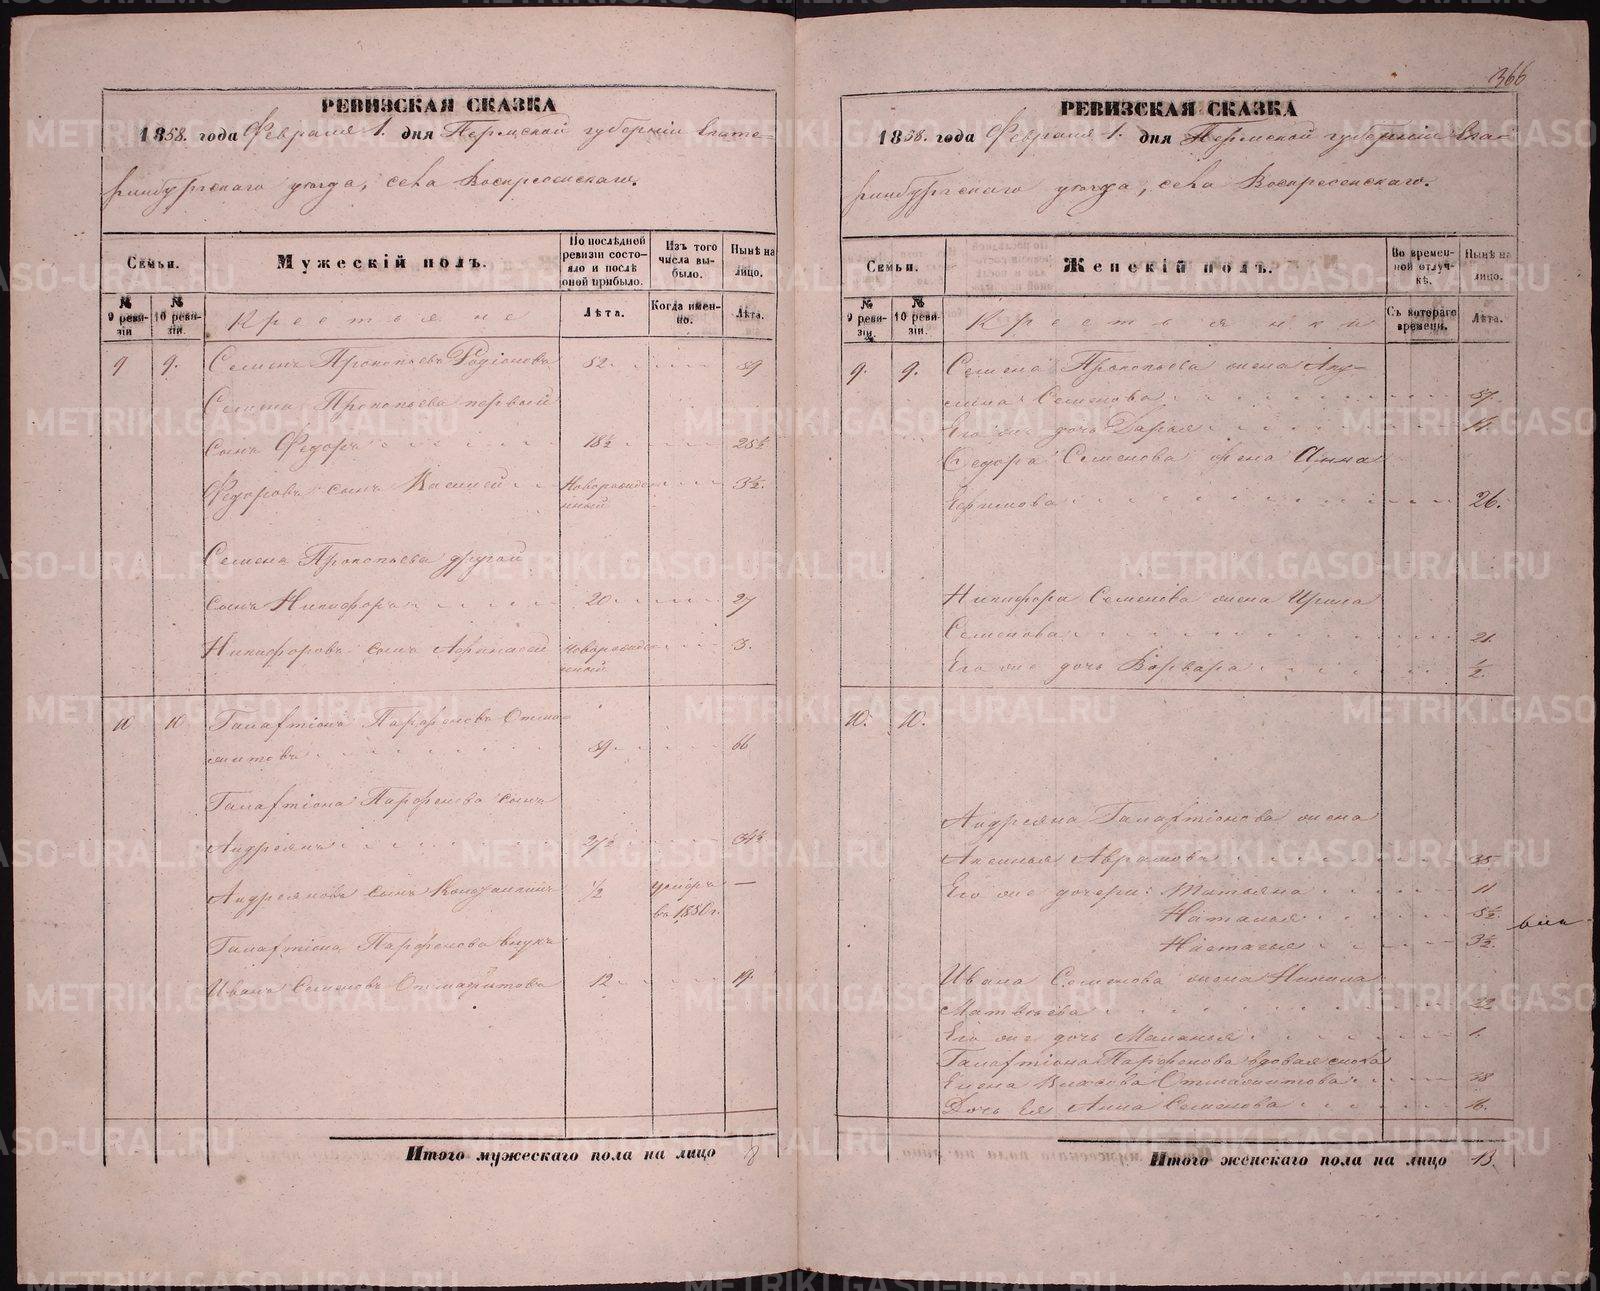 РЕВИЗСКАЯ СКАЗКА
1858. года Февраля 1. дня Пермской губернiи Екате-
ринбургскаго уѣзда, села Воскресенскаго.
Семьи.
Мужескiй полъ.
По послѣдней ревизiи состояло и послѣ оной прибыло.
Изъ того числа выбыло.
Нынѣ на лицо.
№ 9 ревизiи
№ 10 ревизiи.
Крестьяне
Лѣта.
Когда именно.
Лѣта.
9 9. Семенъ Прокопьевъ Родiоновъ 52. 59
Семена Прокопьева первый
сынъ Федоръ 18½ 25½
Федоровъ сынъ Василей Новорожде- 3½.
нный
Семена Прокопьева другой
сынъ Никифоръ 20 27
Никифоровъ сынъ Афанасей Новорожде- 3.
нный
10 10 Галактiонъ Парфеновъ
59 66
Галактiона Парфенова сынъ
Андреянъ 27½ 34½
Андреяновъ сынъ ½ умеръ —
въ 1850 г.
Галактiона Парфенова внукъ
Иванъ Семеновъ 12 19
Итого мужескаго пола на лицо 8
366
РЕВИЗСКАЯ СКАЗКА
1858. года Февраля 1. дня Пермской губернiи Екате-
ринбургскаго уѣзда, села Воскресенскаго.
Семьи.
Женскiй полъ.
Во временной отлучкѣ.
Нынѣ на лицо.
№ 9 ревизiи.
№ 10 ревизiи.
Крестьянки
Съ котораго времени.
Лѣта.
9. 9. Семена Прокопьева жена Аку-
лина Семенова 57.
Его же дочь Дарья 14.
Федора Семенова жена Анна
Ефимова 26.
Никифора Семенова жена Ирина
Семенова 21.
Его же дочь Варвара ½.
10. 10.
Андреяна Галактiонова жена
Аксинья Аврамова 35.
Его же дочери: Татьяна 11
Наталья 5½.
Настасья 3½.
Ивана Семенова жена
Матвѣева 22
Его же дочь Маланья 1.
Галактiона Парфенова вдовая сноха
Елена 38
Дочь Ея Анна Семенова 16.
Итого женскаго пола на лицо 13.
METRIKI.GASO-URAL.RU